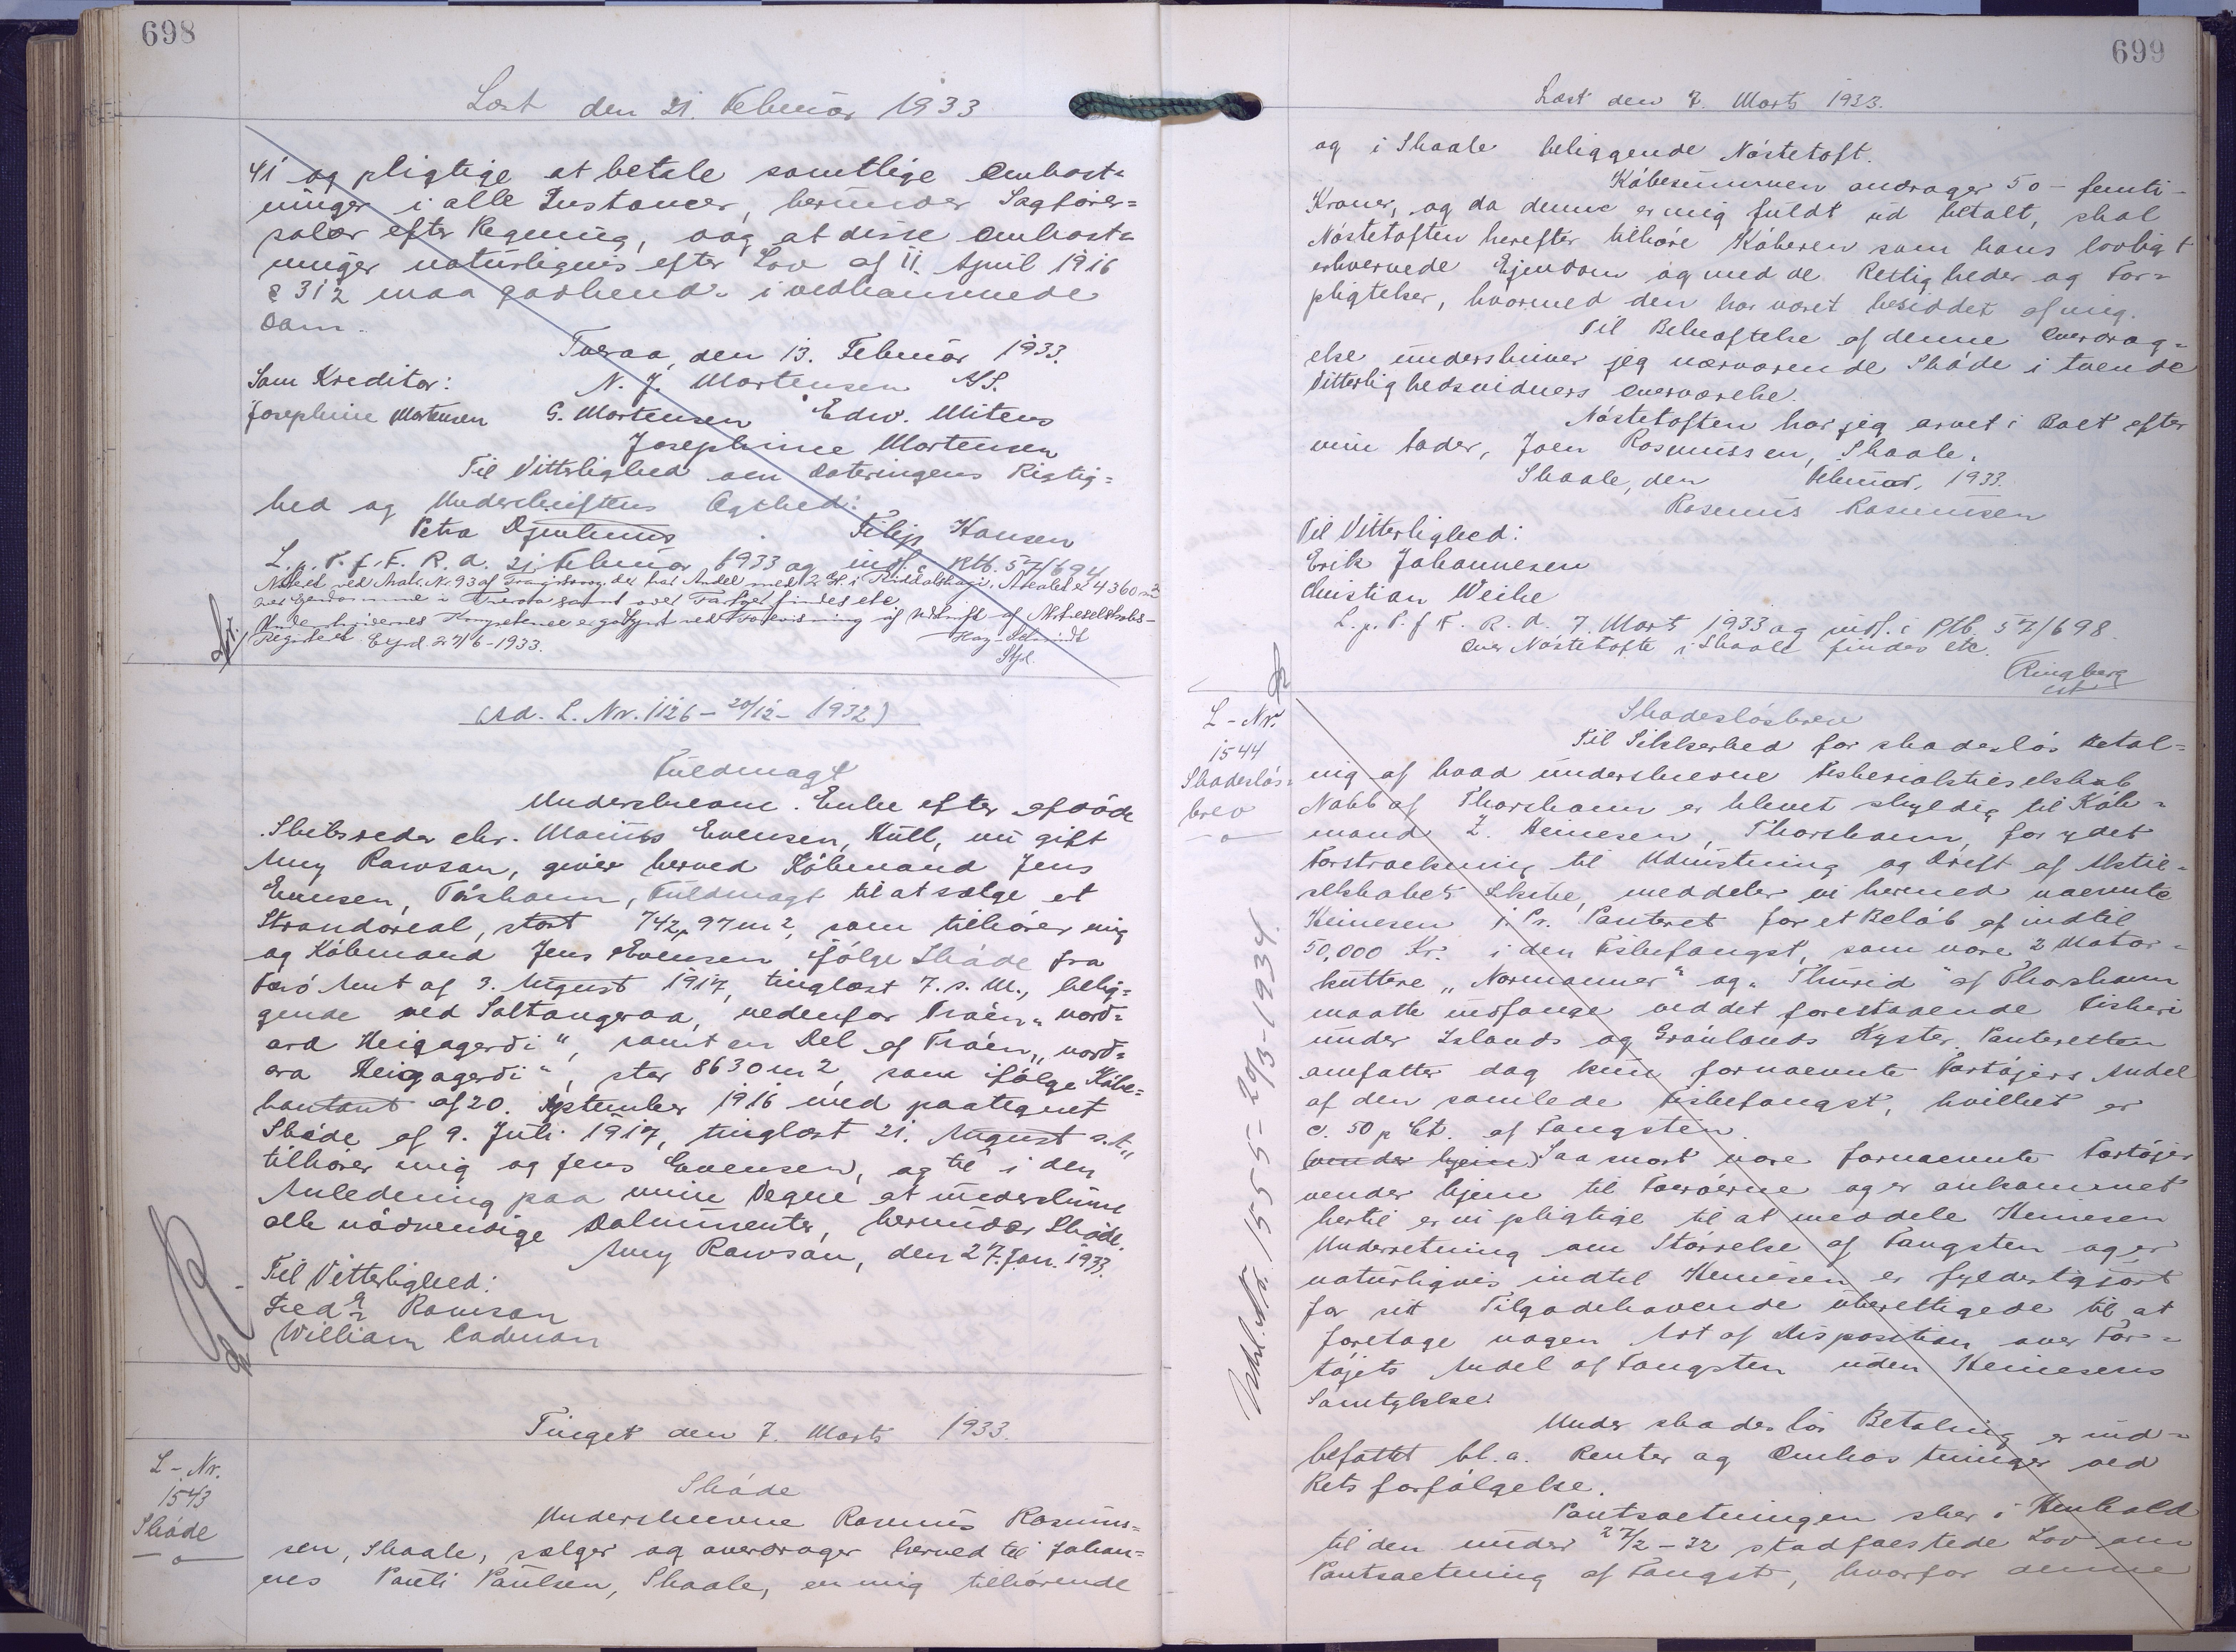 698
Læst den 21. Februar 1933
vi og pligtige at betale samtlige Omkost-
ninger i alle Instanser, herunder Sagfører=
salær efter Regning, og at disse Omkost-
ninger naturligvis efter Lov af 11. April 1916
§ 312 maa godkendes i vedkommende
Dom.
Tveraa, den 13. Februar 1933.
Som Kreditor: N. J. Mortensen A/S.
Josephine Mortensen G. Mortensen Edw. Mitens
Josephine Mortensen
Til Vitterlighed om Dateringens Rigtig=
hed og Underskriftens Ægthed:
Petra Djurhuus Filip Hansen
L. p. T. f. F. R. d. 21. Februar 1933 og indf. i Ktb. 57/694
Noteret ved Matr. Nr. 93 af Trangisvaag, der har Andel med 2 Gl. i Areal er 4360 m²
over Ejendomme i Tveraa samt over Fartøjer findes etc.
Underskrivernes Kompetence er godtgjort ved Forevisning af Udskrift af Aktieselskabs-
Registeret. Expd. 27/6-1933.
(Ad. L. Nr. 1126 - 20/12- 1932)
Fuldmagt
Underskrevne. Enke efter afdøde
Skibsreder chr. Marius Evensen, Hull, nu gift
Amy Rawson, giver herved Købmand Jens
Evensen, Tórshavn, Fuldmagt til at sælge et
Strandareal, stort 742,97 m2, som tilhører mig
og Købmand Jens Evensen ifølge Skøde fra
Færø Amt af 3. August 1917, tinglæst 7. s. M., belig=
gende ved Saltangeraa, nedenfor Traën „nord=
ara Heigagerdi“, samt en Del af Traën „nord=
ara Heigagerdi“, stor 8630 m2, som ifølge Købe=
kontrakt af 20. September 1916 med paategnet
Skøde af 9. Juli 1917, tinglæst 21. August s. A.,
tilhører mig og Jens Evensen, og til i den
Anledning paa mine Vegne at underskrive
alle nødvendige Dokumenter, herunder Skøde.
Amy Rawson, den 27. Jan. 1933.
Til Vitterlighed:
Fredk Rawson
William Cadman
Tinget den 7. Marts 1933.
L-Nr.
1543
Skøde
Skøde
Underskrevne Rasmus Rasmus=
sen, Skaale, sælger og overdrager herved til Johan=
nes Pauli Paulsen, Skaale, en mig tilhørende
699
Læst den 7. Marts 1933.
og i Skaale beliggende Nóstetoft.
Købesummen andrager 50 - femti -
Kroner, og da denne er mig fuldt ud betalt, skal
Nóstetoften herefter tilhøre Køberen som hans lovligt
erhvervede Ejendom og med de Rettigheder og For=
pligtelser, hvormed den har været besiddet af mig.
Til Bekræftelse af denne Overdrag=
else underskriver jeg nærværende Skøde i tvende
Vitterlighedsvidners Overværelse.
Nóstetoften har jeg arvet i Boet efter
min Fader, Joen Rasmussen, Skaale.
Skaale, den Februar, 1933.
Rasmus Rasmussen
Til Vitterlighed:
Erik Johannesen
Christian Weihe
L. p. T. f. F. R. d. 7. Mart 1933 og indf. i Ptb. 57/698.
Over Nóstetofte i Skaale findes etc.
Ringberg
cst
L-Nr.
1544
Skadesløs-
brev
Skadesløsbrev
Til Sikkerhed for skadesløs Betal=
nig af hvad underskrevne Fiskeriaktieselskab
Nabb af Thorshavn er blevet skyldig til Køb=
mand Z. Heinesen, Thorshavn, for ydet
Forstrækning til Udrustning og Drift af Aktie=
selskabets Skibe, meddeler vi herved nævnte
Heinesen 1. Pr. Panteret for et Beløb af indtil
50,000 Kr. i den Fiskefangst, som vore 2 Motor=
kuttere „Normanner“ og „Thurid“ af Thorshavn
maatte indfange ved det forestaaende Fiskeri
under Islands og Grønlands Kyster. Panteretten
omfatter dog kun fornævnte Fartøjers Andel
af den samlede Fiskefangst, hvilket er
c. 50 p Ct. af Fangsten.
(vender hjem) Saa snart vore fornævnte Fartøjer
vender hjem til Færøerne og er ankommet
hertil er vi pligtige til at meddele Heinesen
Underretning om Størrelse af Fangsten og er
naturligvis indtil Heinesen er fyldestgjort
for sit Tilgodehavende uberettigede til at
foretage nogen Art af Disposition over Far=
tøjets Andel af Fangsten uden Heinesens
Samtykke.
Under skadesløs Betaling er ind=
befattet bl. a. Renter og Omkostninger ved
Retsforfølgelse.
Pantsætningen sker i Henhold
til den under 27/2 - 32 stadfæstede Lov om
Pantsætning af Fangst, hvorfor denne
Udsl. Nr. 1555- 20/3-1934.